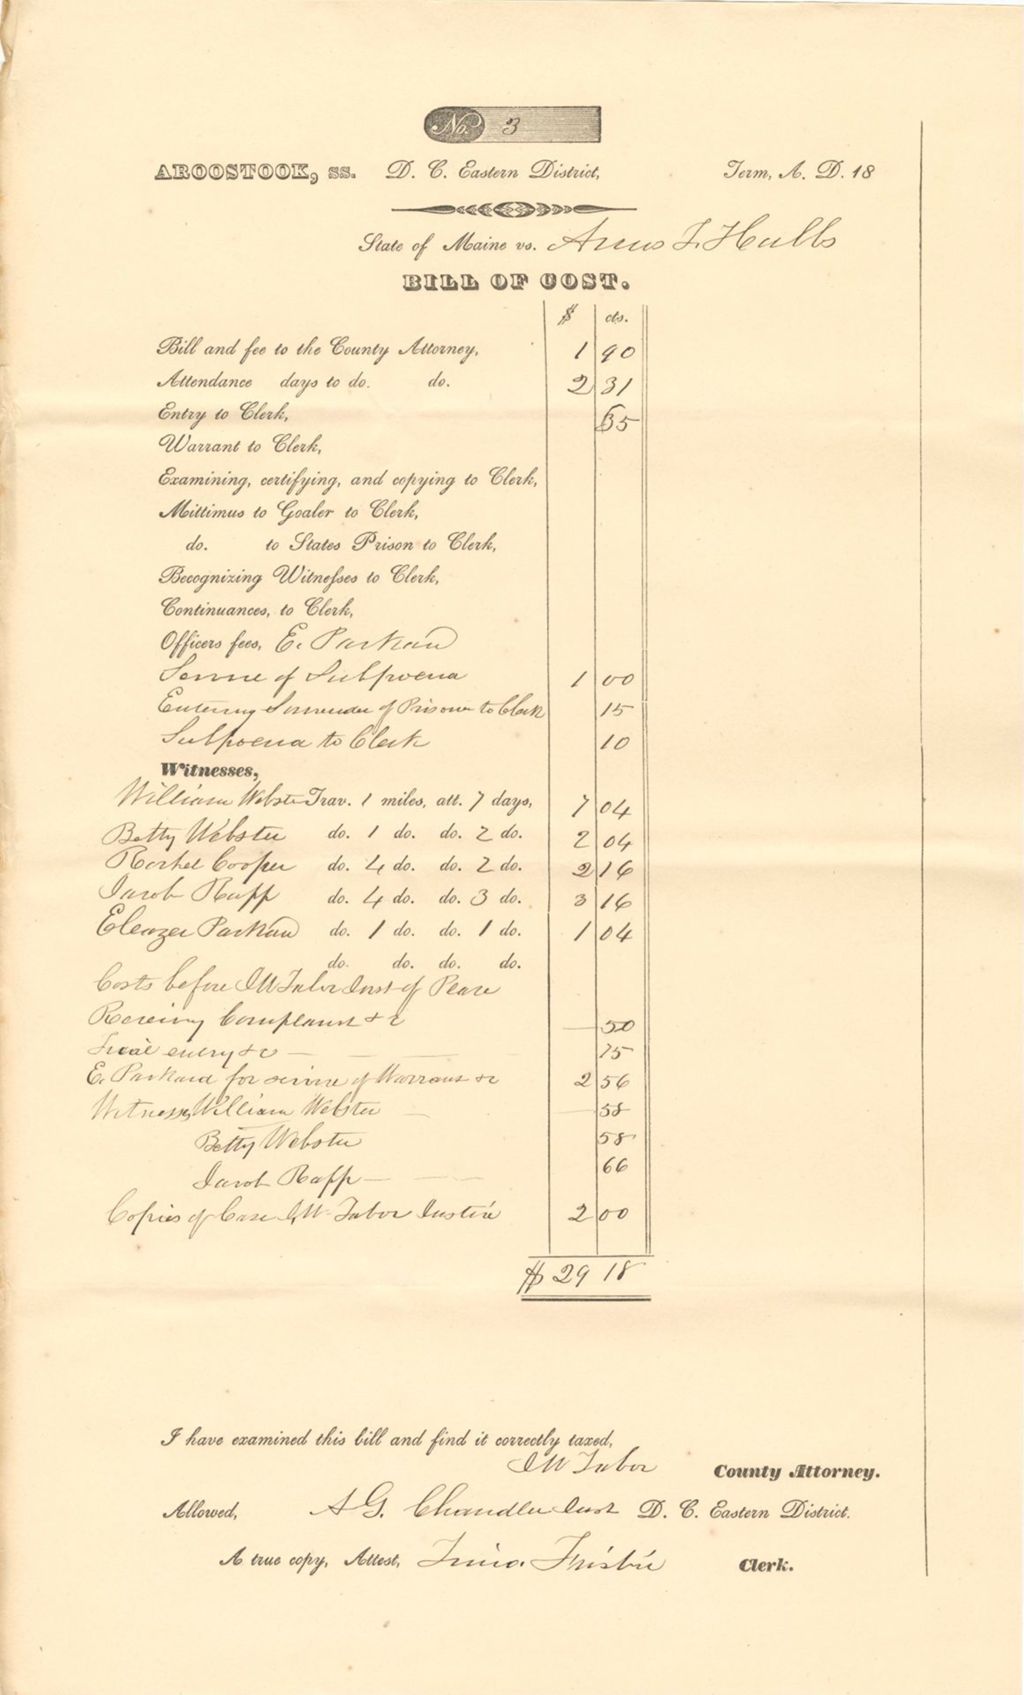 No. 3
AROOSTOOK, ss. D. C. Eastern District, Term, A. D. 18
State of Maine vs. F. Hubbs
BILL OF COST.
$ cts.
Bill and fee to the County Attorney, 1 90
Attendance days to do. do. 2 31
Entry to Clerk, 65
Warrant to Clerk,
Examining, certifying, and copying to Clerk,
Mittimus to Goaler to Clerk,
do. to States Prison to Clerk,
Recognizing Witnesses to Clerk,
Continuances, to Clerk,
Officers fees, E. Packard
Service of Subpoena 1 00
Entering Surrender of Prisoner to Clerk 15
Subpoena to Clerk 10
Witnesses,
William Webster Trav. 1 miles, att. 7 days, 7 04
Betty Webster do. 1 do. do. 2 do. 2 04
Rachel Cooper do. 4 do. do. 2 do. 2 16
Jacob Rapp do. 4 do. do. 3 do. 3 16
Eleazer Packard do. 1 do. do. 1 do. 1 04
do. do. do. do.
Costs before J W Tabor Just of Peace
Receiving Complaint &c 50
entry &c 75
E. Packard for service of Warrant &c 2 56
Witness, William Webster 58
Betty Webster 58
Jacob Rapp 66
Copies of Case J W Tabor Justice 2 00
$ 29 18
I have examined this bill and find it correctly taxed,
J W Tabor County Attorney.
Allowed, A G. Chandler Just D. C. Eastern District.
A true copy, Attest, Frisbie Clerk.